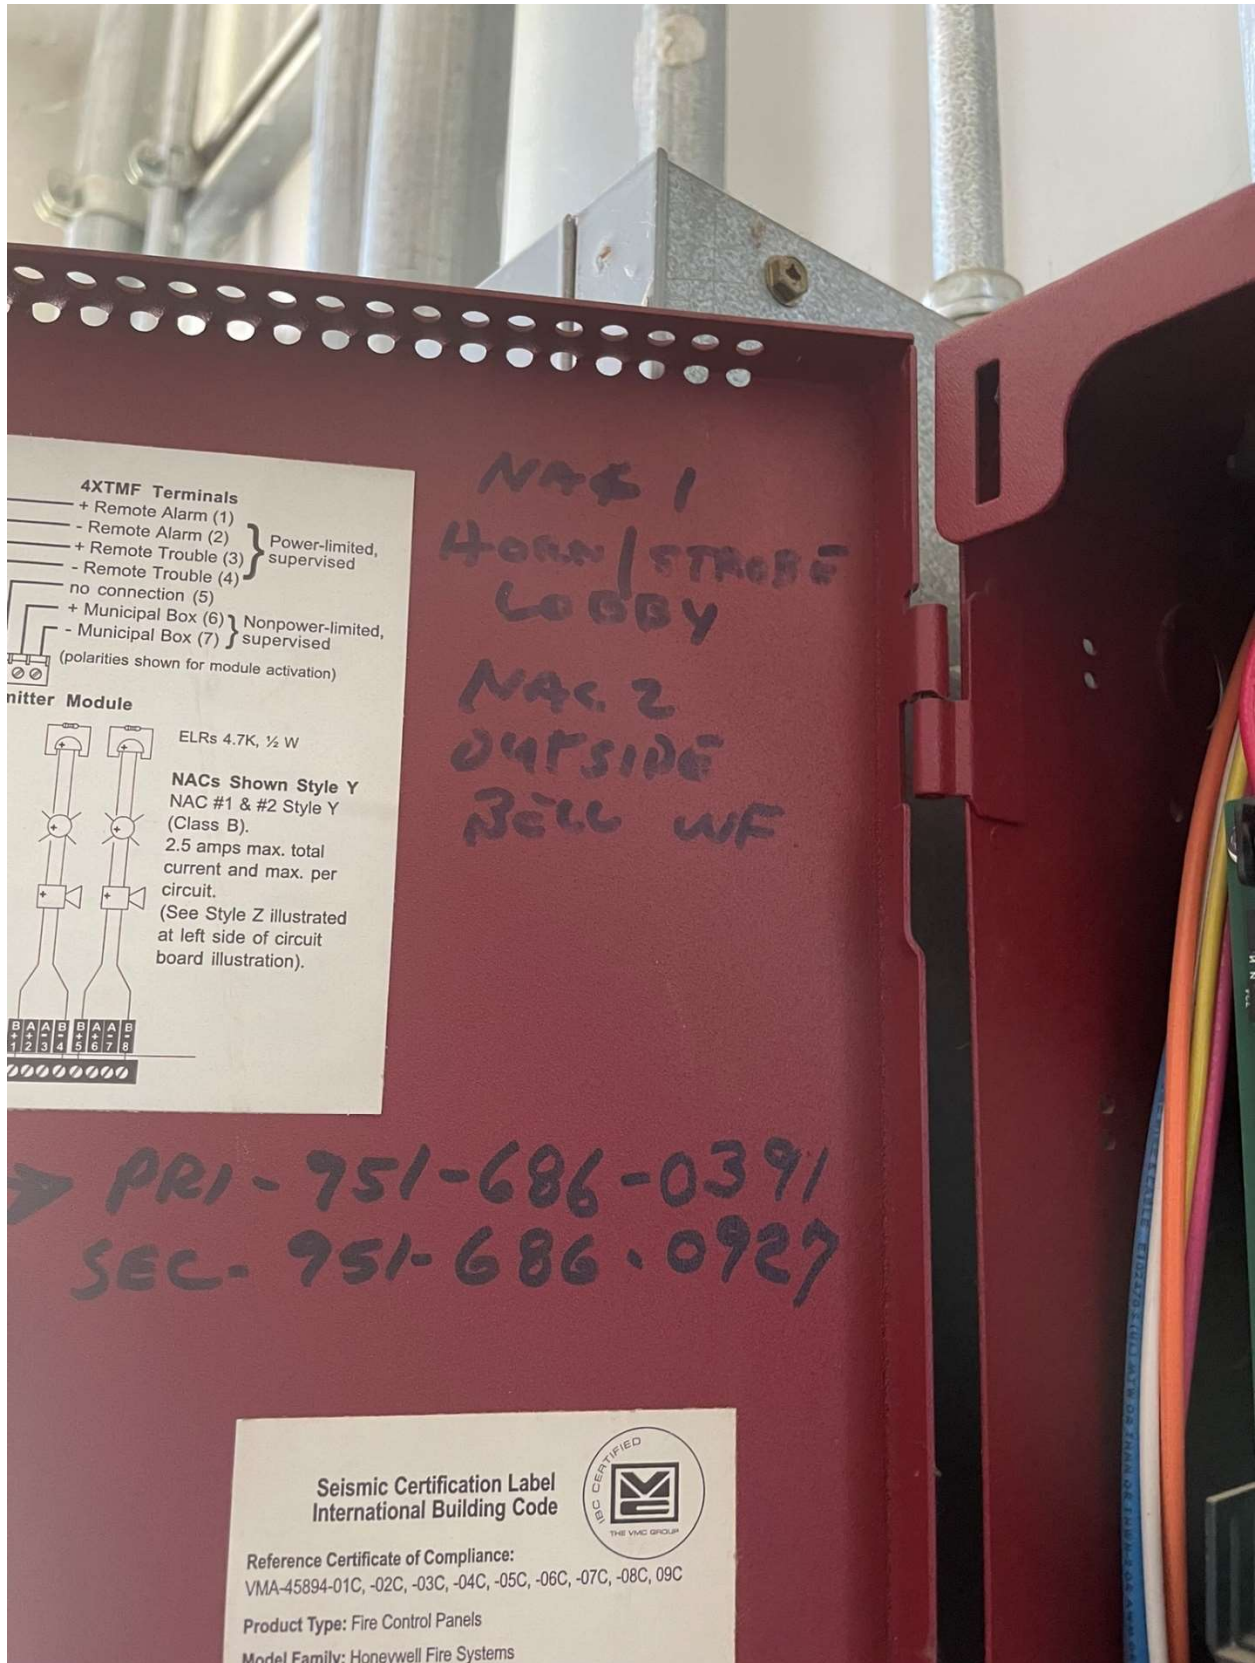 4XTMF Terminals
+ Remote Alarm (1)
- Remote Alarm (2)
+ Remote Trouble (3)
- Remote Trouble (4)
Power-limited,
supervised
no connection (5)
+ Municipal Box (6)
- Municipal Box (7)
Nonpower-limited,
supervised
(polarities shown for module activation)
mitter Module
ELRs 4.7K, ½ W
NACs Shown Style Y
NAC #1 & #2 Style Y
(Class B).
2.5 amps max. total
current and max. per
circuit.
(See Style Z illustrated
at left side of circuit
board illustration).
B+1 A+2 A-3 B-4 B+5 A+6 A-7 B-8
NAC 1
HORN/STROBE
LOBBY
NAC 2
OUTSIDE
BELL WF
→ PRI - 951-686-0391
SEC - 951-686-0927
Seismic Certification Label
International Building Code
IBC CERTIFIED
THE VMC GROUP
Reference Certificate of Compliance:
VMA-45894-01C, -02C, -03C, -04C, -05C, -06C, -07C, -08C, 09C
Product Type: Fire Control Panels
Model Family: Honeywell Fire Systems